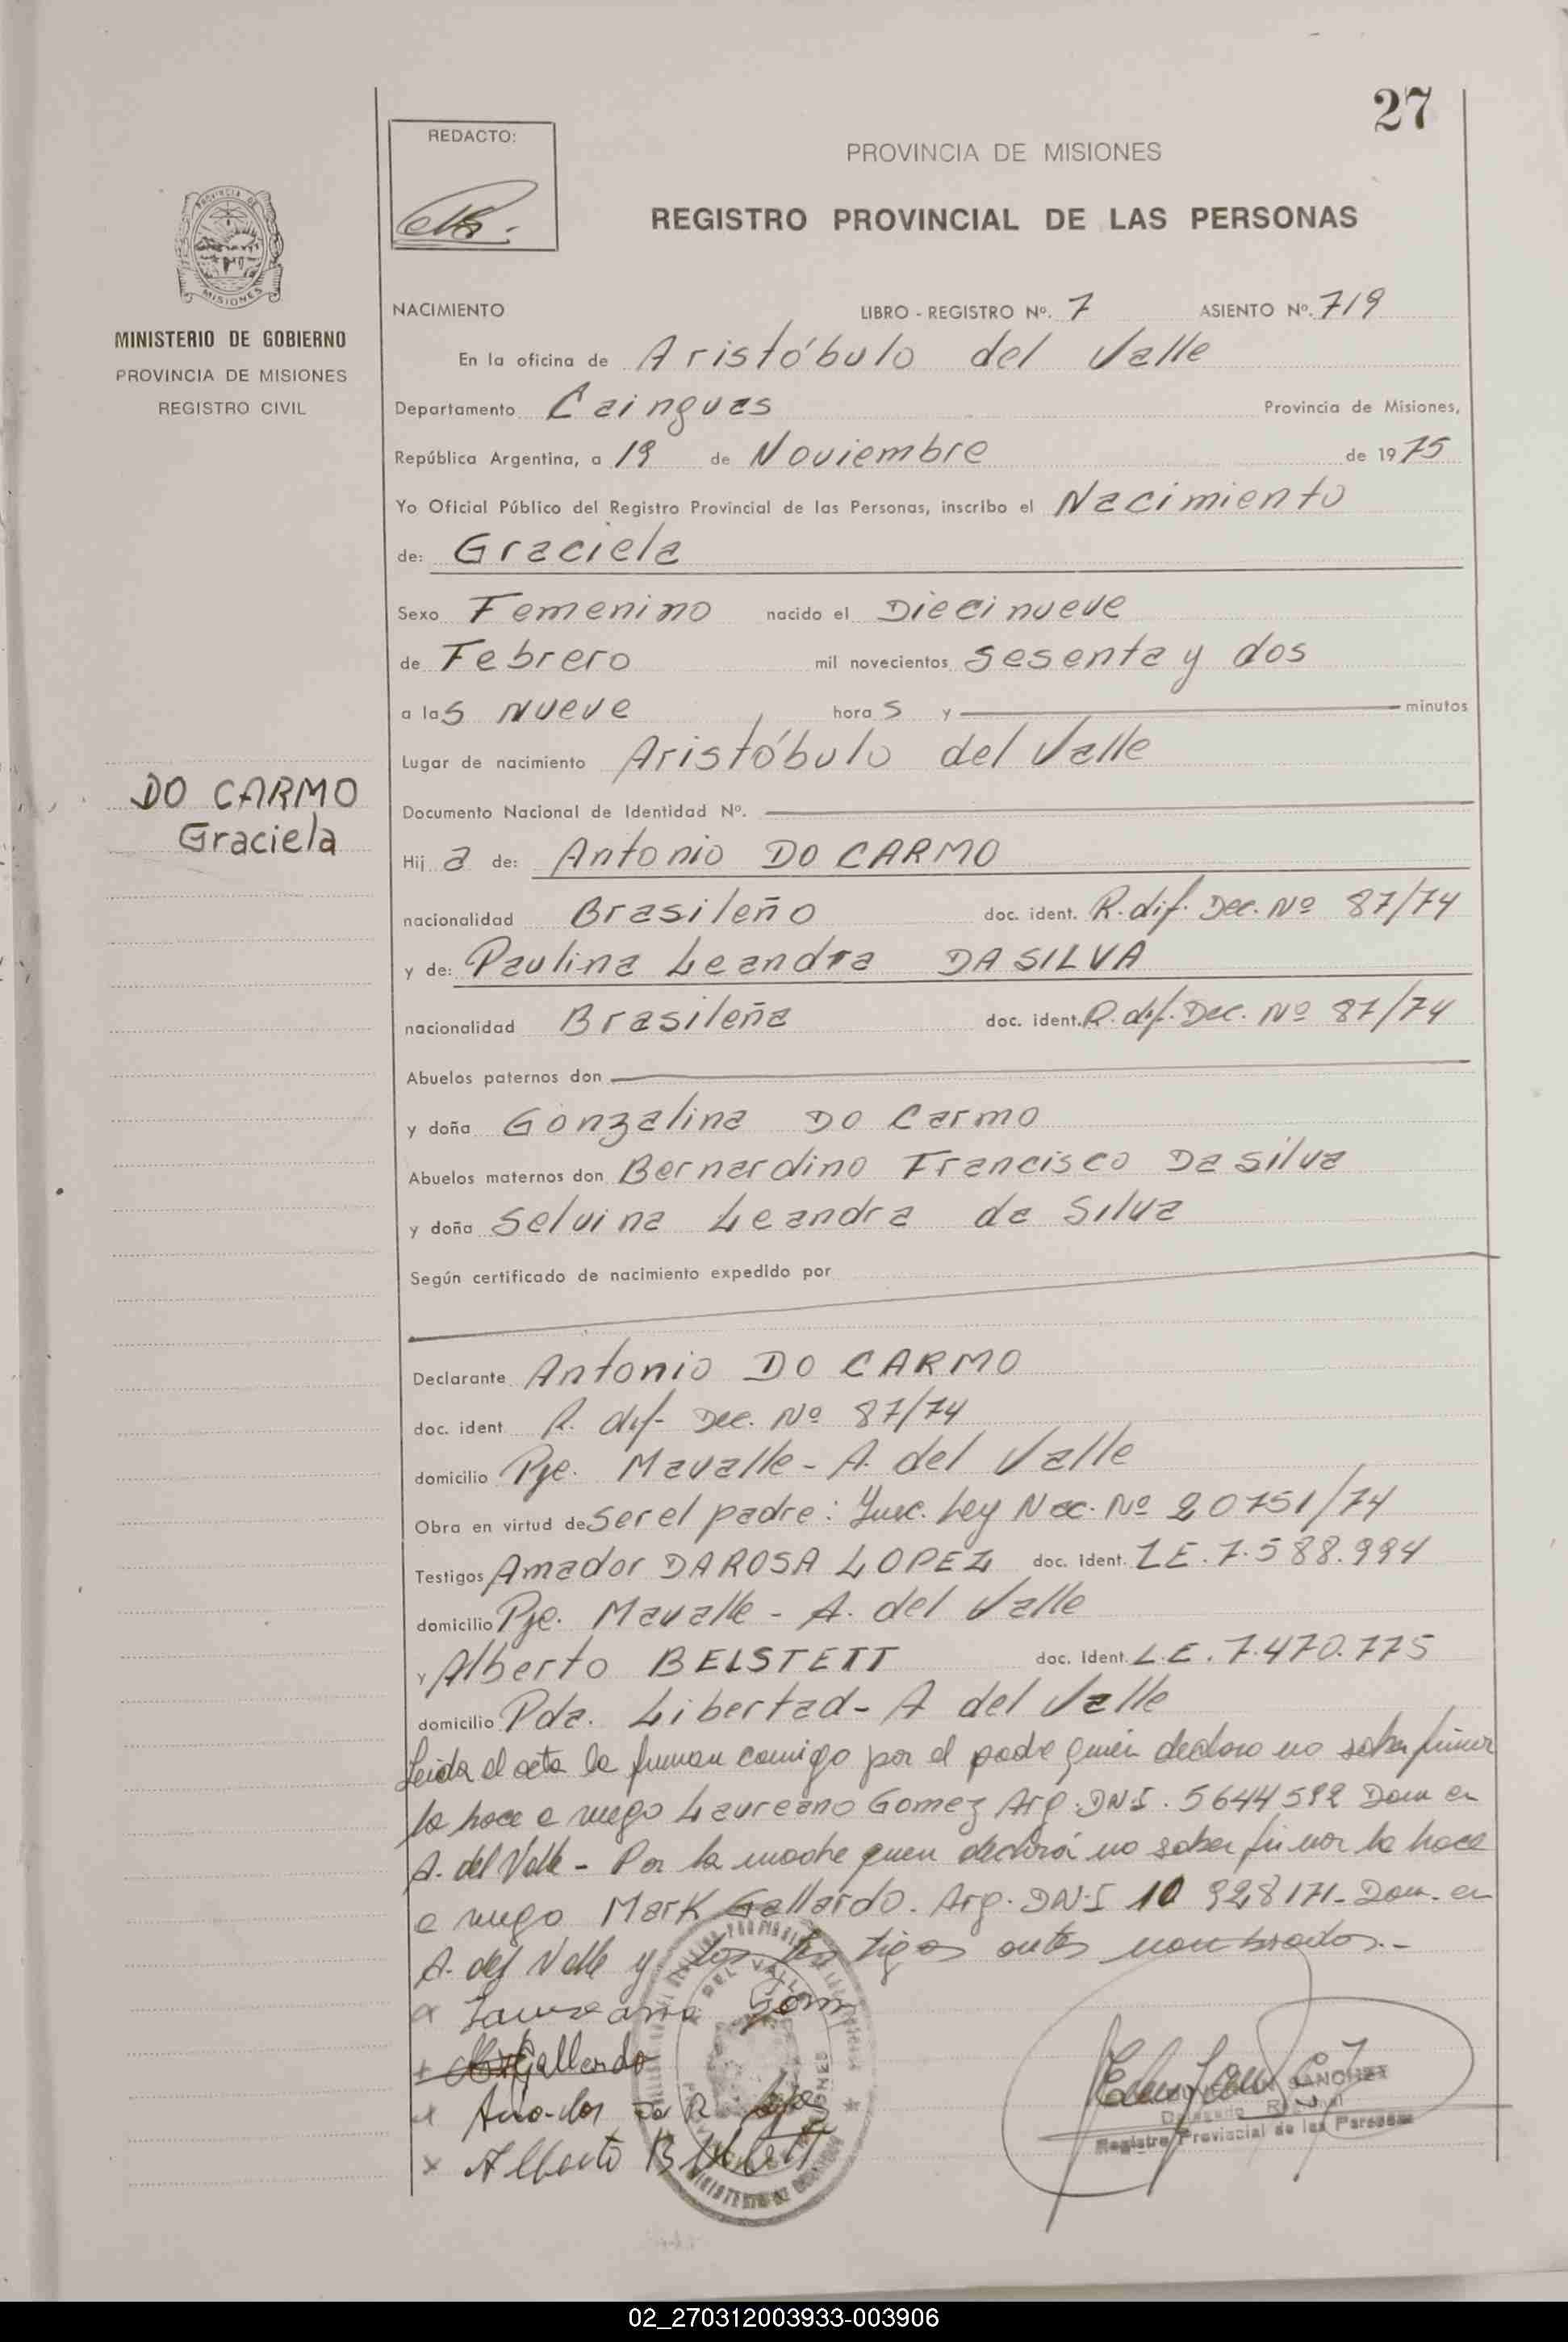 27
REDACTO:
PROVINCIA DE MISIONES
REGISTRO PROVINCIAL DE LAS PERSONAS
PROVINCIA DE
MISIONES
MINISTERIO DE GOBIERNO
PROVINCIA DE MISIONES
REGISTRO CIVIL
NACIMIENTO LIBRO - REGISTRO Nº. 7 ASIENTO Nº. 719
En la oficina de Aristóbulo del Valle
Departamento Cainguas Provincia de Misiones,
República Argentina, a 19 de Noviembre de 1975
Yo Oficial Público del Registro Provincial de las Personas, inscribo el Nacimiento
de: Graciela
Sexo Femenino nacido el Diecinueve
de Febrero mil novecientos sesenta y dos
a las Nueve horas y minutos
Lugar de nacimiento Aristóbulo del Valle
DO CARMO
Graciela
Documento Nacional de Identidad Nº.
Hij a de: Antonio DO CARMO
nacionalidad Brasileño doc. ident. R. dif. Dec. Nº 87/74
y de: Paulina Leandra DA SILVA
nacionalidad Brasileña doc. ident. R. dif. Dec. Nº 87/74
Abuelos paternos don
y doña Gonzalina Do Carmo
Abuelos maternos don Bernardino Francisco Da Silva
y doña Selvina Leandra da Silva
Según certificado de nacimiento expedido por
Declarante Antonio DO CARMO
doc. ident R. dif- Dec. Nº 87/74
domicilio Pje. Mavalle - A. del Valle
Obra en virtud de ser el padre: Insc. Ley Nac. Nº 20751/74
Testigos Amador DA ROSA LOPEZ doc. ident. LE. 7.588.994
domicilio Pje. Mavalle - A. del Valle
y Alberto BELSTETT doc. Ident. L.E. 7.470.775
domicilio Pda. Libertad - A del Valle
Leida el acta la firman comigo por el padre quien declaro no saber firmar
lo hace a ruego Laureano Gomez Arg. DNI. 5644592 Dom en
A. del Valle - Por la madre quien declara no saber firmar lo hace
a ruego Mark Gallardo. Arg. DNI 10 928171 - Dom. en
A. del Valle y los testigos antes nombrados.-
Gallardo
Alberto
SANCHEZ
Delegado Regional
Registro Provincial de las Personas
02_270312003933-003906